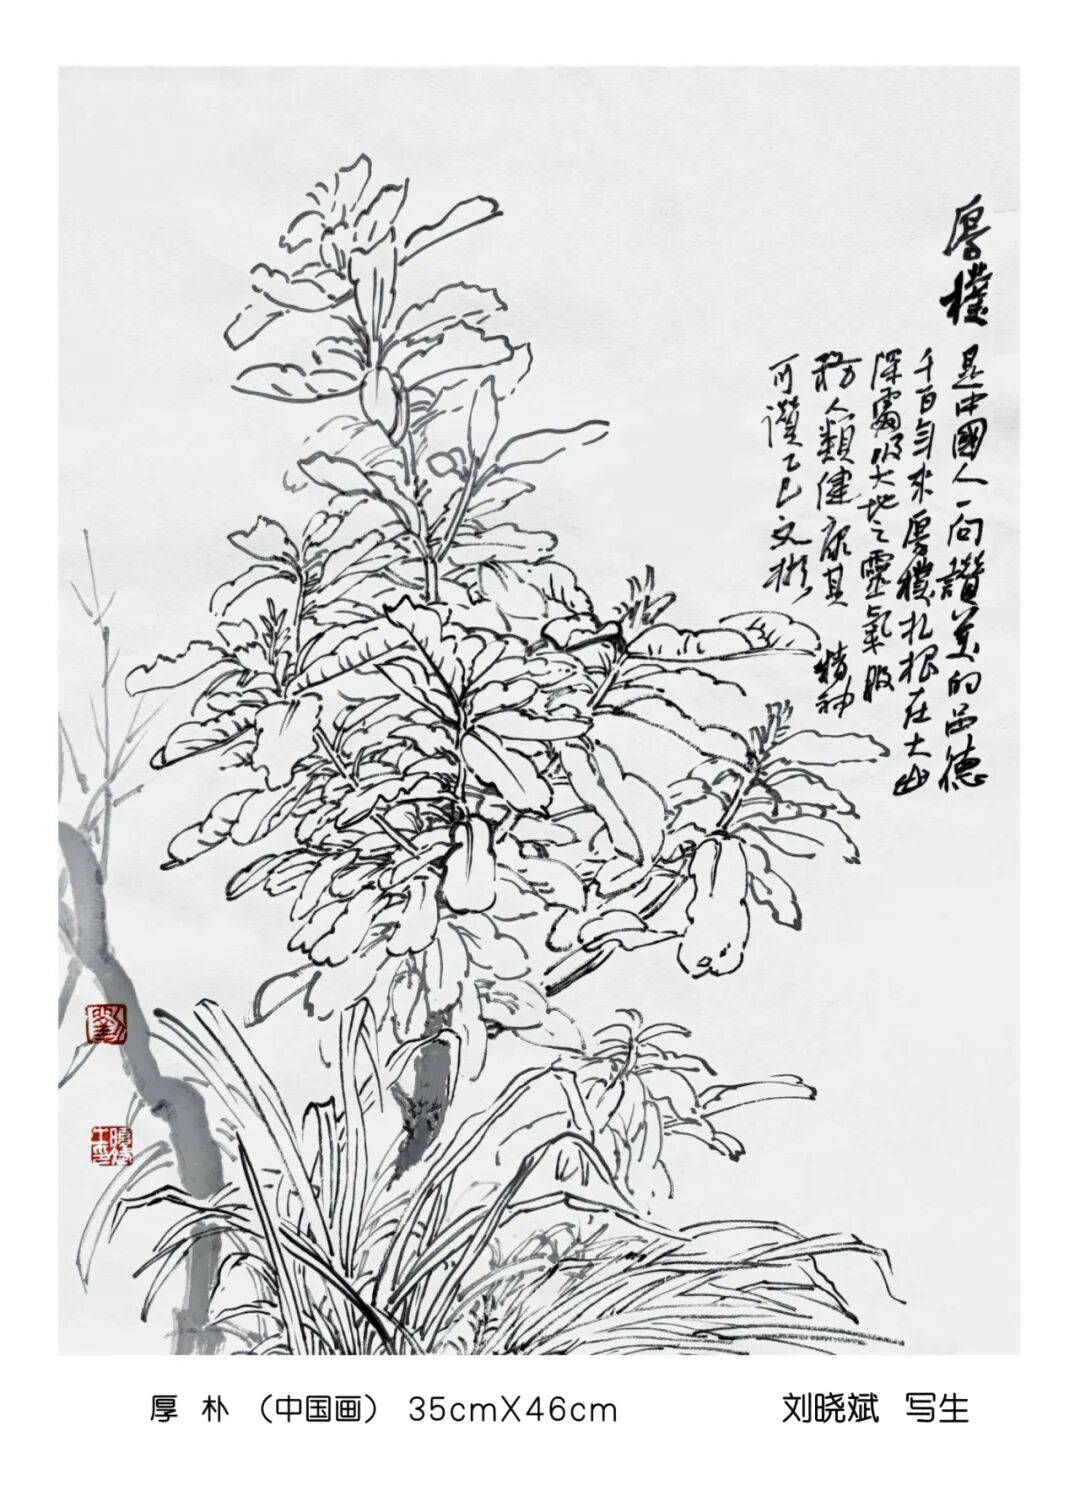 厚樸 是中國人一向讚美的品德
千百年來厚樸扎根在大山
深處吸大地之靈氣服
務人類健康其精神
可讚乙巳文彬
劉
厚 朴 （中国画） 35cmX46cm 刘晓斌 写生